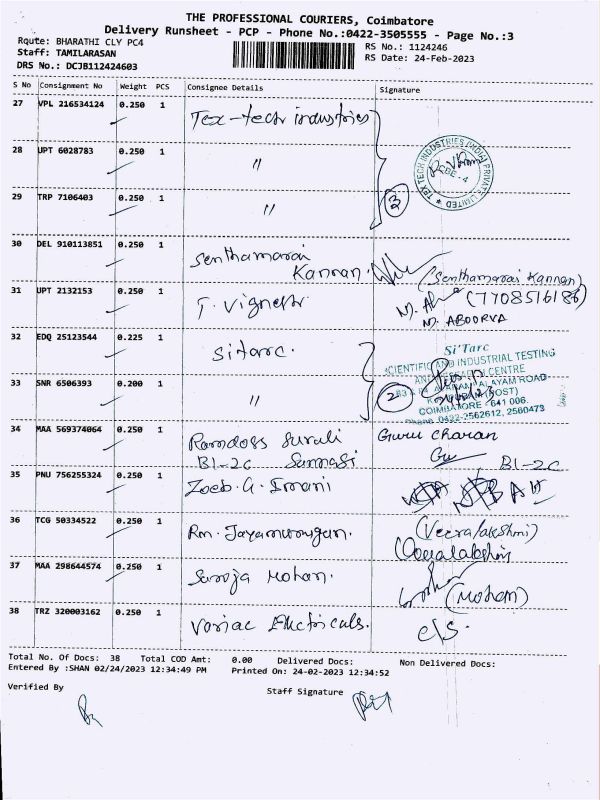 THE PROFESSIONAL COURIERS, Coimbatore
Delivery Runsheet - PCP - Phone No.:0422-3505555 - Page No.:3
Route: BHARATHI CLY PC4
RS No.: 1124246
Staff: TAMILARASAN
RS Date: 24-Feb-2023
DRS No.: DCJB112424603
S No Consignment No Weight PCS Consignee Details Signature
27 VPL 216534124 0.250 1 Tex-tech industries
28 UPT 6028783 0.250 1 "
TEX TECH INDUSTRIES (INDIA) PRIVATE LIMITED
CBE - 4
29 TRP 7106403 0.250 1 " 3
30 DEL 910113851 0.250 1 Senthamarai
Kannan. (Senthamarai Kannan)
31 UPT 2132153 0.250 1 T. Vignesh (7708516186)
M. ABOORVA
32 EDQ 25123544 0.225 1 Sitarc.
Si'Tarc
SCIENTIFIC AND INDUSTRIAL TESTING
AND RESEARCH CENTRE
33 SNR 6506393 0.200 1 " 2
ROAD
(POST)
COIMBATORE - 641 006.
Phone 0422-2562612, 2560473
34 MAA 569374064 0.250 1 Ramdoss Surali Guru Charan
B1-2C Sannasi B1-2C
35 PNU 756255324 0.250 1 Zoeb. G. Imani
36 TCG 50334522 0.250 1 Rm. Jayamurugan. (Veeralakshmi)
37 MAA 298644574 0.250 1 Saroja Mohan. (Mohan)
38 TRZ 320003162 0.250 1 Variac Electricals. c/s.
Total No. Of Docs: 38 Total COD Amt: 0.00 Delivered Docs: Non Delivered Docs:
Entered By :SHAN 02/24/2023 12:34:49 PM Printed On: 24-02-2023 12:34:52
Verified By Staff Signature